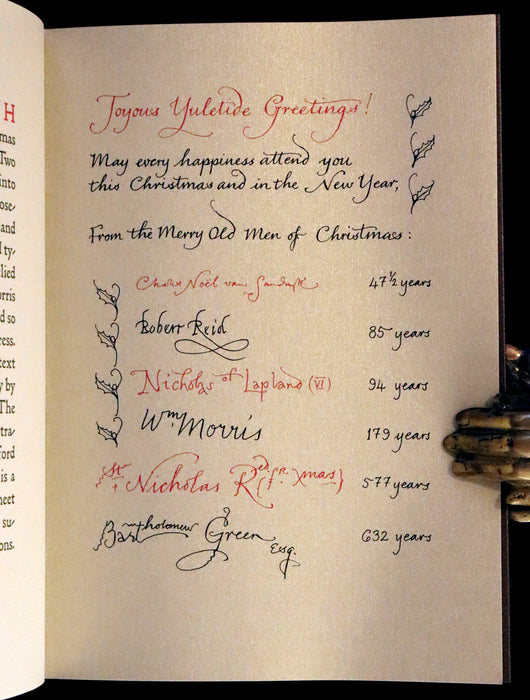 H
mas
Two
into
ose-
and
l ty-
lied
orris
d so
ress.
text
y by
The
tra-
ford
is a
neet
su-
ons.
Joyous Yuletide Greetings!
May every happiness attend you
this Christmas and in the New Year,
From the Merry Old Men of Christmas:
Noël van 47½ years
Robert Reid 85 years
Nicholas of Lapland (VI) 94 years
Wm Morris 179 years
St. Nicholas Red (fr. Xmas) 577 years
Bartholomew Green Esq. 632 years